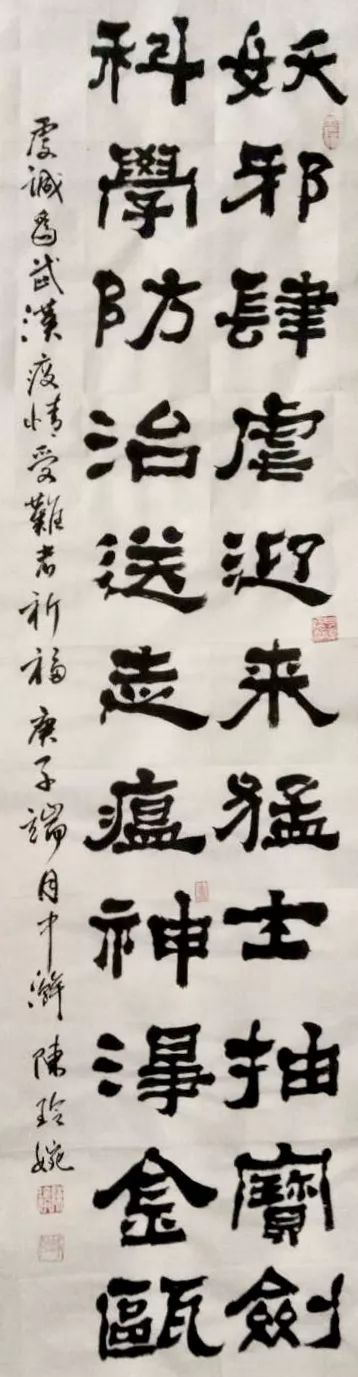 妖邪肆虐迎来猛士抽寳劍
科學防治送走瘟神浄金甌
虔誠爲武漢疫情受難者祈福 庚子端月中澣 陳玲婉